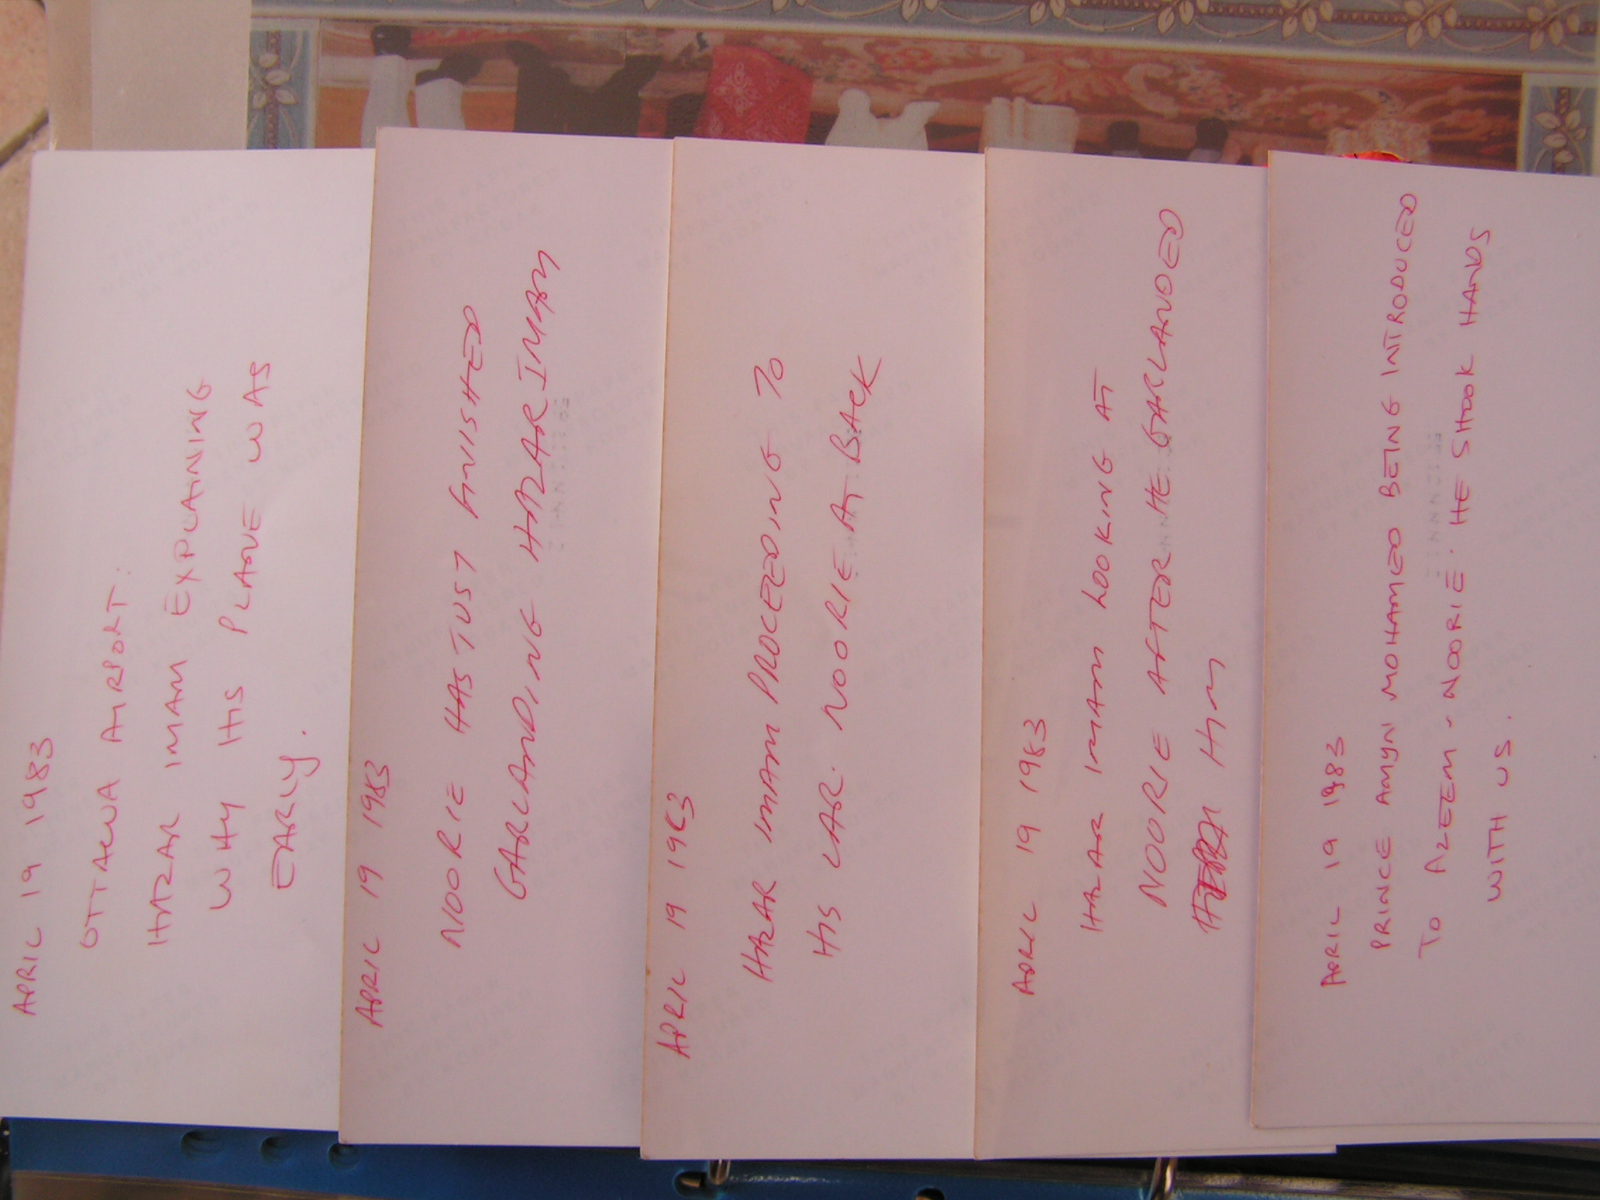 APRIL 19 1983
OTTAWA AIRPORT.
HAZAR IMAM EXPLAINING
WHY HIS PLANE WAS
EARLY.
APRIL 19 1983
NOORIE HAS JUST FINISHED
GARLANDING HAZAR IMAM
APRIL 19 1983
HAZAR IMAM PROCEEDING TO
HIS CAR. NOORIE AT BACK
APRIL 19 1983
HAZAR IMAM LOOKING AT
NOORIE AFTER HE GARLANDED
HIM
APRIL 19 1983
PRINCE AMYN MOHAMED BEING INTRODUCED
TO AZEEM - NOORIE. HE SHOOK HANDS
WITH US.